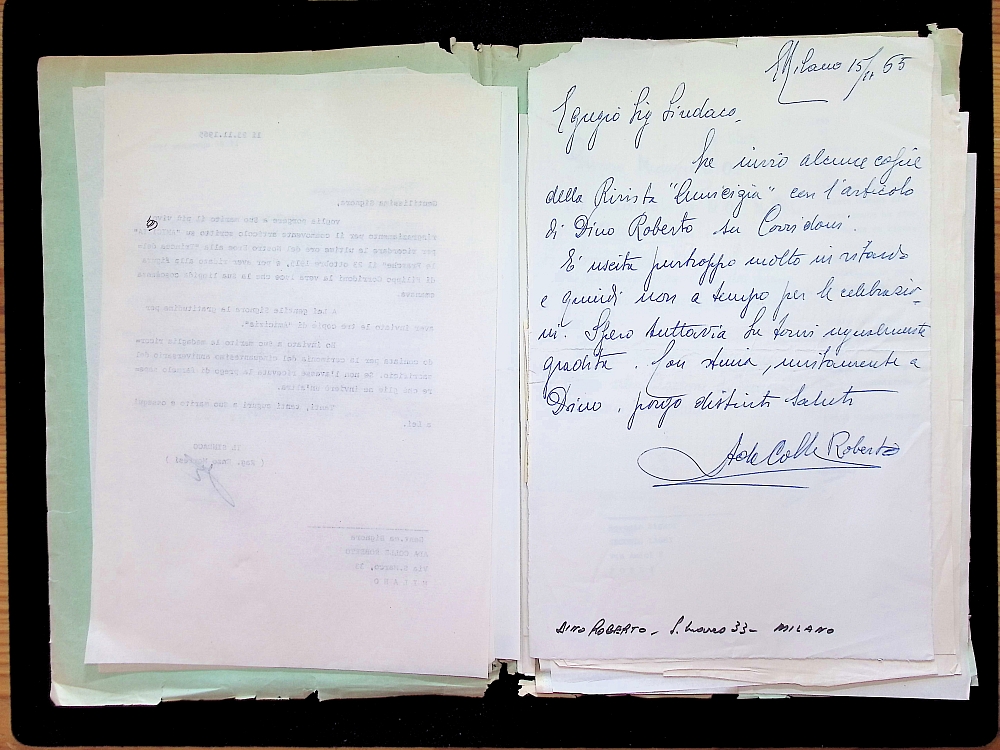 li 23.11.1965
Gentilissima Signora,
voglia porgere a suo marito il più vivo
ringraziamento per il commovente articolo scritto su
per ricordare le ultime ore del nostro Eroe alla "Trincea delle
Frasche" il 23 ottobre 1915, e per aver
di Filippo Corridoni la vera luce che la sua
A Lei gentile Signora la gratitudine per
aver inviato le tre copie di
Ho inviato a suo marito la medaglia
coniata per la cerimonia del cinquantesimo anniversario del
sacrificio. Se non l'avesse ricevuta la prego di
re che gliene invierò un'altra.
Tanti, tanti auguri a suo marito e ossequi
a Lei.
IL SINDACO
Gent.ma Signora
ADA COLLE ROBERTO
MILANO
Milano 15/11 65
Egregio Sig Sindaco,
Le invio alcune copie
della Rivista "Amicizia" con l'articolo
di Dino Roberto su Corridoni.
E' uscita purtroppo molto in ritardo
e quindi non a tempo per le celebrazio-
ni. Spero tuttavia Le torni ugualmente
gradita. Con stima, unitamente a
Dino, porgo distinti saluti
Ada Colle Roberto
DINO ROBERTO - 33 - MILANO